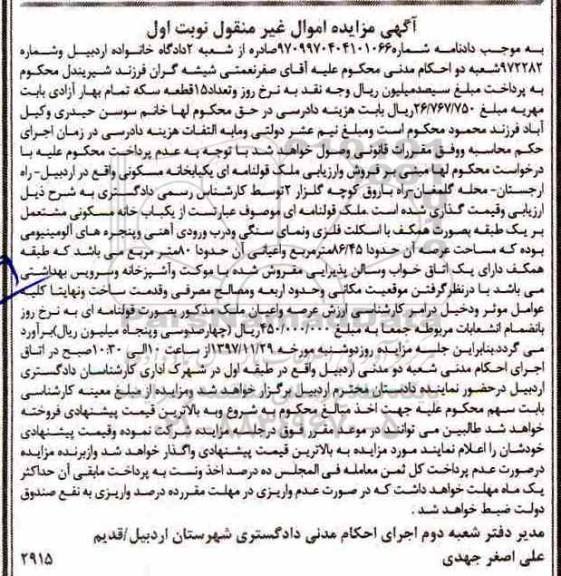 آگهی مزایده اموال غیر منقول نوبت اول
به موجب دادنامه شماره ۹۷۰۹۹۷۰۴۰۴۱۰۱۰۶۶صادره از شعبه ۲دادگاه خانواده اردبیل وشماره
۹۷۲۲۸۲شعبه دو احکام مدنی محکوم علیه آقای صفرنعمتی شیشه گران فرزند شیریندل محکوم
به پرداخت مبلغ سیصدمیلیون ریال وجه نقد به نرخ روز وتعداد۱۵قطعه سکه تمام بهار آزادی بابت
مهریه مبلغ ۲۶/۷۶۷/۷۵۰ریال بابت هزینه دادرسی در حق محکوم لها خانم سوسن حیدری وکیل
آباد فرزند محمود محکوم است ومبلغ نیم عشر دولتی ومابه التفات هزینه دادرسی در زمان اجرای
حکم محاسبه ووفق مقررات قانونی وصول خواهد شد با توجه به عدم پرداخت محکوم علیه با
درخواست محکوم لها مبنی بر فروش وارزیابی ملک قولنامه ای یکبابخانه مسکونی واقع در اردبیل- راه
ارجستان- محله گلمغان-راه باروق کوچه گلزار ۲توسط کارشناس رسمی دادگستری به شرح ذیل
ارزیابی وقیمت گذاری شده است .ملک قولنامه ای موصوف عبارتست از یکباب خانه مسکونی مشتمل
بر یک طبقه بصورت همکف با اسکلت فلزی ونمای سنگی ودرب ورودی آهنی وپنجره های آلومینیومی
بوده که مساحت عرصه آن حدودا ۸۶/۴۵مترمربع واعیانی آن حدودا ۸۰متر مربع می باشد که طبقه
همکف دارای یک اتاق خواب وسالن پذیرایی مفروش شده با موکت وآشپزخانه وسرویس بهداشتی
می باشد با درنظرگرفتن موقعیت مکانی وحدود اربعه ومصالح مصرفی وقدمت ساخت ونهایتا کلیه
عوامل موثر ودخیل درامر کارشناسی ارزش عرصه واعیان ملک مذکور بصورت قولنامه ای به نرخ روز
بانضمام انشعابات مربوطه جمعا به مبلغ ۴۵۰/۰۰۰/۰۰۰ریال (چهارصدوسی وپنجاه میلیون ریال)برآورد
می گردد.بنابراین جلسه مزایده روزدوشنبه مورخه ۱۳۹۷/۱۱/۲۹از ساعت ۱۰الی ۱۰:۳۰صبح در اتاق
اجرای احکام مدنی شعبه دو مدنی اردبیل واقع در طبقه اول در شهرک اداری کارشناسان دادگستری
اردبیل درحضور نماینده دادستان محترم اردبیل برگزار خواهد شد ومزایده از مبلغ معینه کارشناسی
بابت سهم محکوم علیه جهت اخذ مبالغ محکوم به شروع وبه بالاترین قیمت پیشنهادی فروخته
خواهد شد طالبین می توانند در موعد مقرر فوق درجلسه مزایده شرکت نموده وقیمت پیشنهادی
خودشان را اعلام نمایند مورد مزایده به بالاترین قیمت پیشنهادی واگذار خواهد شد وازبرنده مزایده
درصورت عدم پرداخت کل ثمن معامله فی المجلس ده درصد اخذ ونست به پرداخت مابقی آن حداکثر
یک ماه مهلت خواهد داشت که در صورت عدم واریزی در مهلت مقررده درصد واریزی به نفع صندوق
دولت ضبط خواهد شد .
مدیر دفتر شعبه دوم اجرای احکام مدنی دادگستری شهرستان اردبیل/قدیم
علی اصغر جهدی
۲۹۱۵